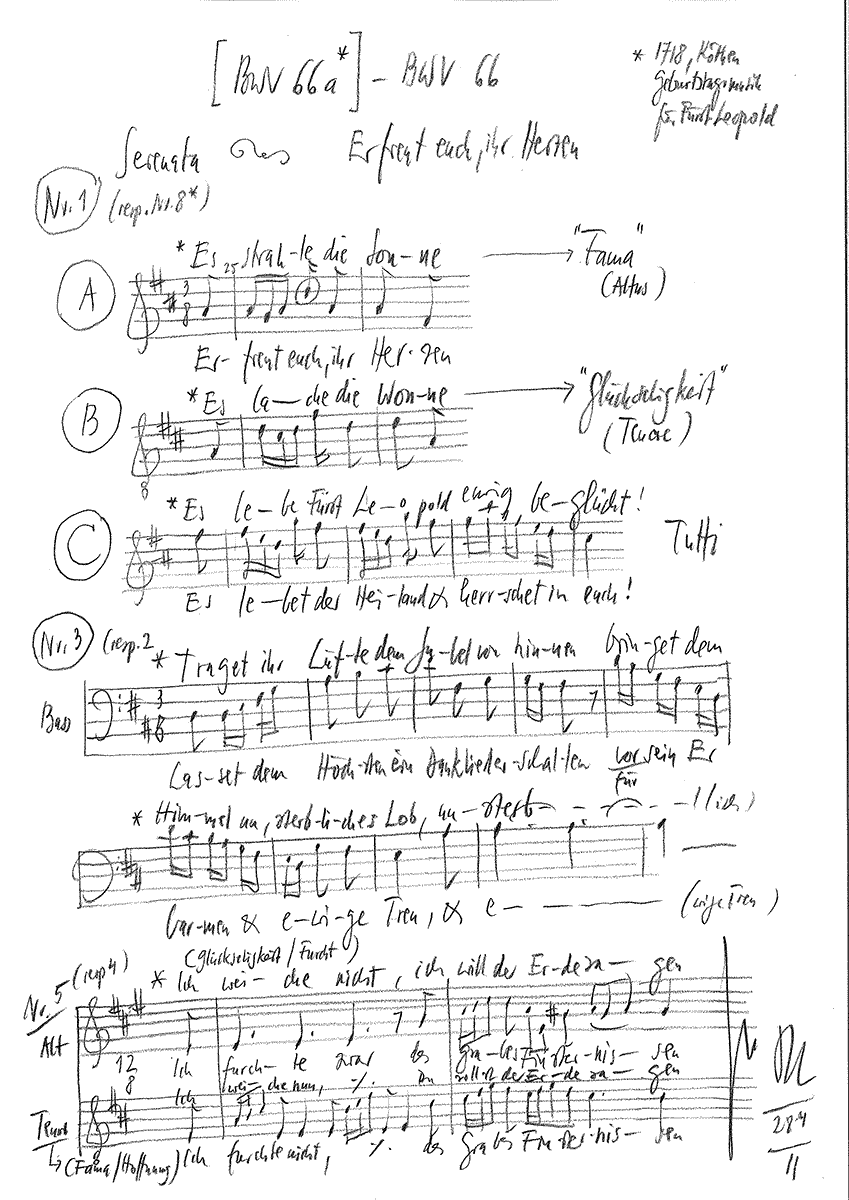 [BWV 66a*] – BWV 66
* 1718, Köthen
Geburtstagsmusik
für Fürst Leopold
Serenata
Erfreut euch, ihr Herzen
Nr. 1
(resp. Nr. 8*)
* Es strah-le die Son-ne
"Fama"
(Altus)
A
3
8
Er- freut euch, ihr Her-zen
* Es la-che die Won-ne
"Glückseligkeit"
(Tenore)
B
8
* Es le-be Fürst Le-o pold ewig be-glückt!
C
Tutti
Es le-bet der Hei-land & herr-schet in euch!
Nr. 3
(resp. 2
* Traget ihr Lüf-te den Ju-bel von hin-nen brin-get dem
Bass
3
8
Las-set dem Höch-sten ein Danklieder-schal-len vor sein Er
für
* Him-mel un, sterb-li-ches Lob, un-sterb- (lich)
bar-men & e-wi-ge Treu, & e- (wige Treu)
(Glückseligkeit / Furcht)
Nr. 5
(resp 4)
* Ich wei-che nicht, ich will der Er-de sa-gen
Alt
12
8
Ich furch-te zwar des Gra-bes Fin ster-nis-sen
Ich wei-che nun, ⁒ du sollst der Er-de sa-gen
Tenor
(Fama / Hoffnung) Ich furchte nicht, ⁒ des Grabes Fin ster nis-sen
28.4
11